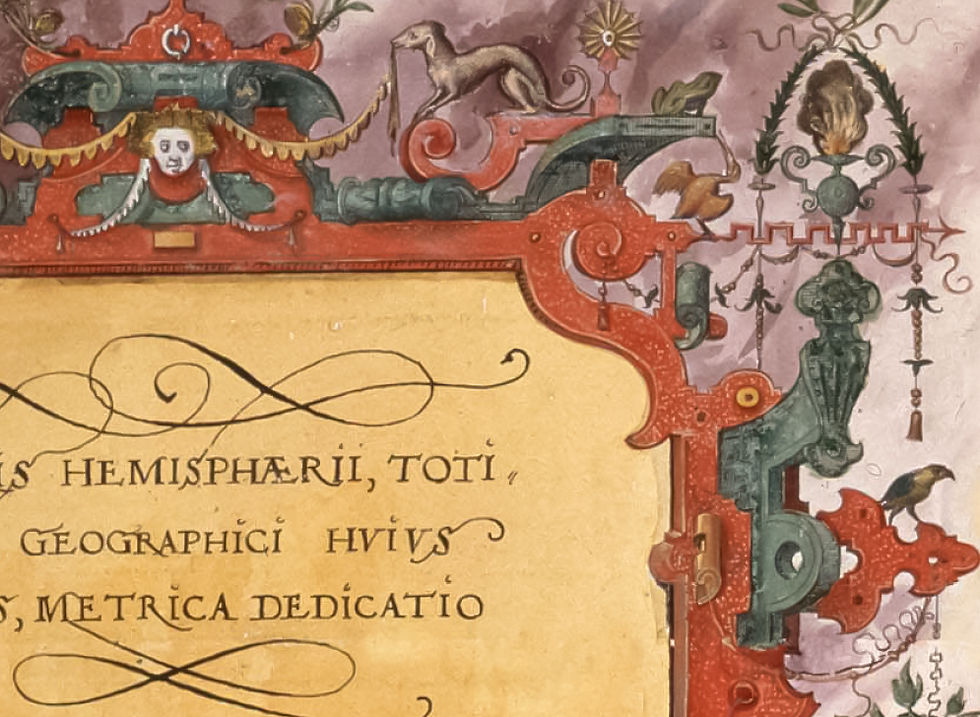 IS HEMISPHÆRII, TOTI„
GEOGRAPHICI HVIVS
S, METRICA DEDICATIO